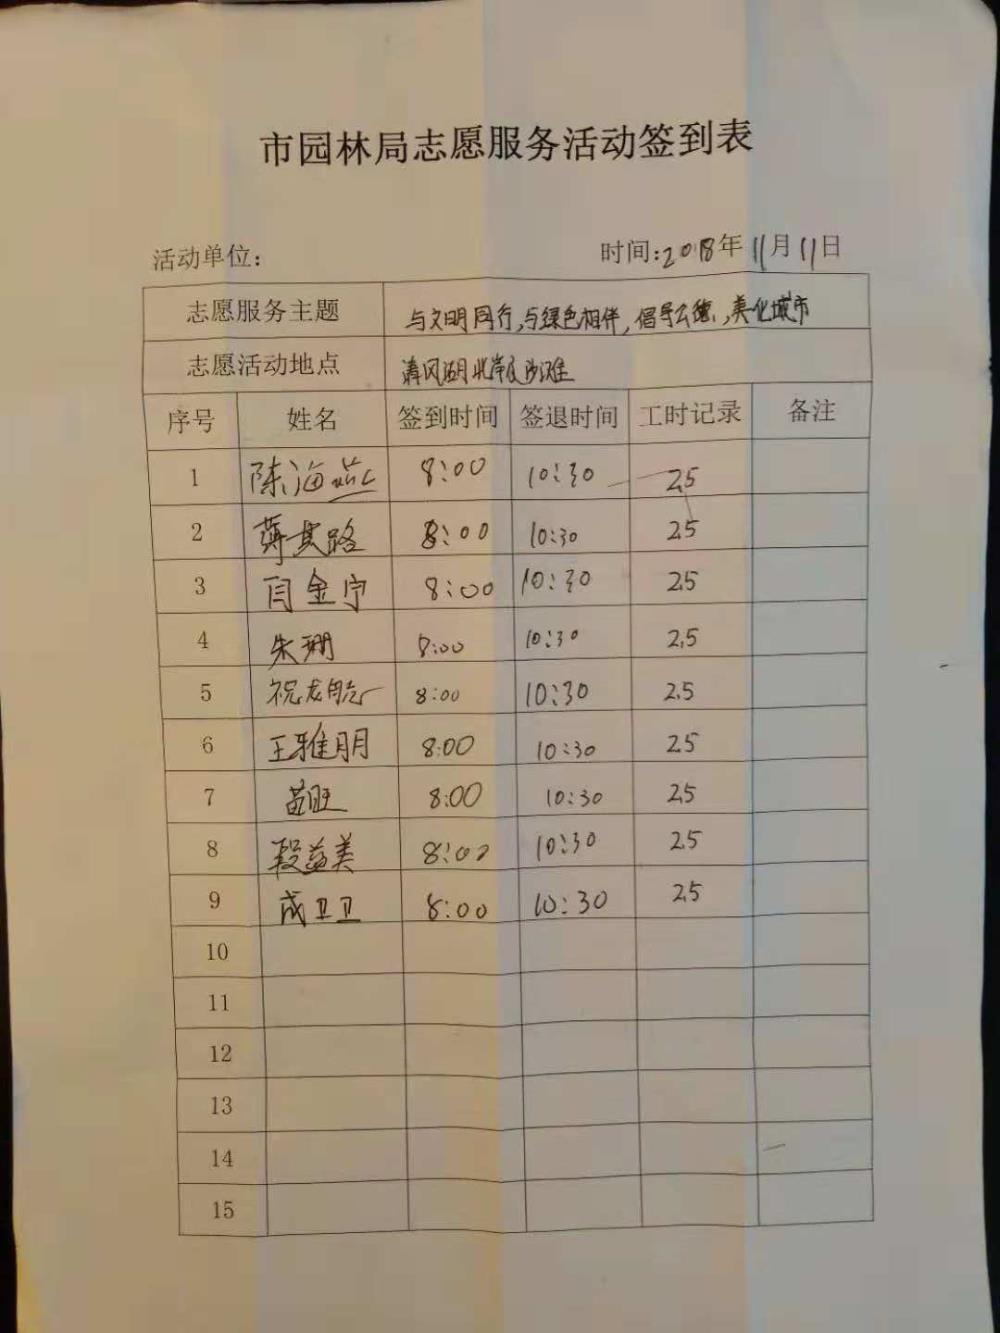 市园林局志愿服务活动签到表
活动单位： 时间：2018年11月11日
志愿服务主题 与文明同行，与绿色相伴，倡导公德，美化城市
志愿活动地点 清风湖北岸及沙滩
序号 姓名 签到时间 签退时间 工时记录 备注
1 陈海燕 8:00 10:30 2.5
2 薄其路 8:00 10:30 2.5
3 闫金宁 8:00 10:30 2.5
4 朱珊 8:00 10:30 2.5
5 祝龙航 8:00 10:30 2.5
6 王雅朋 8:00 10:30 2.5
7 苗旺 8:00 10:30 2.5
8 段益美 8:00 10:30 2.5
9 成卫卫 8:00 10:30 2.5
10
11
12
13
14
15